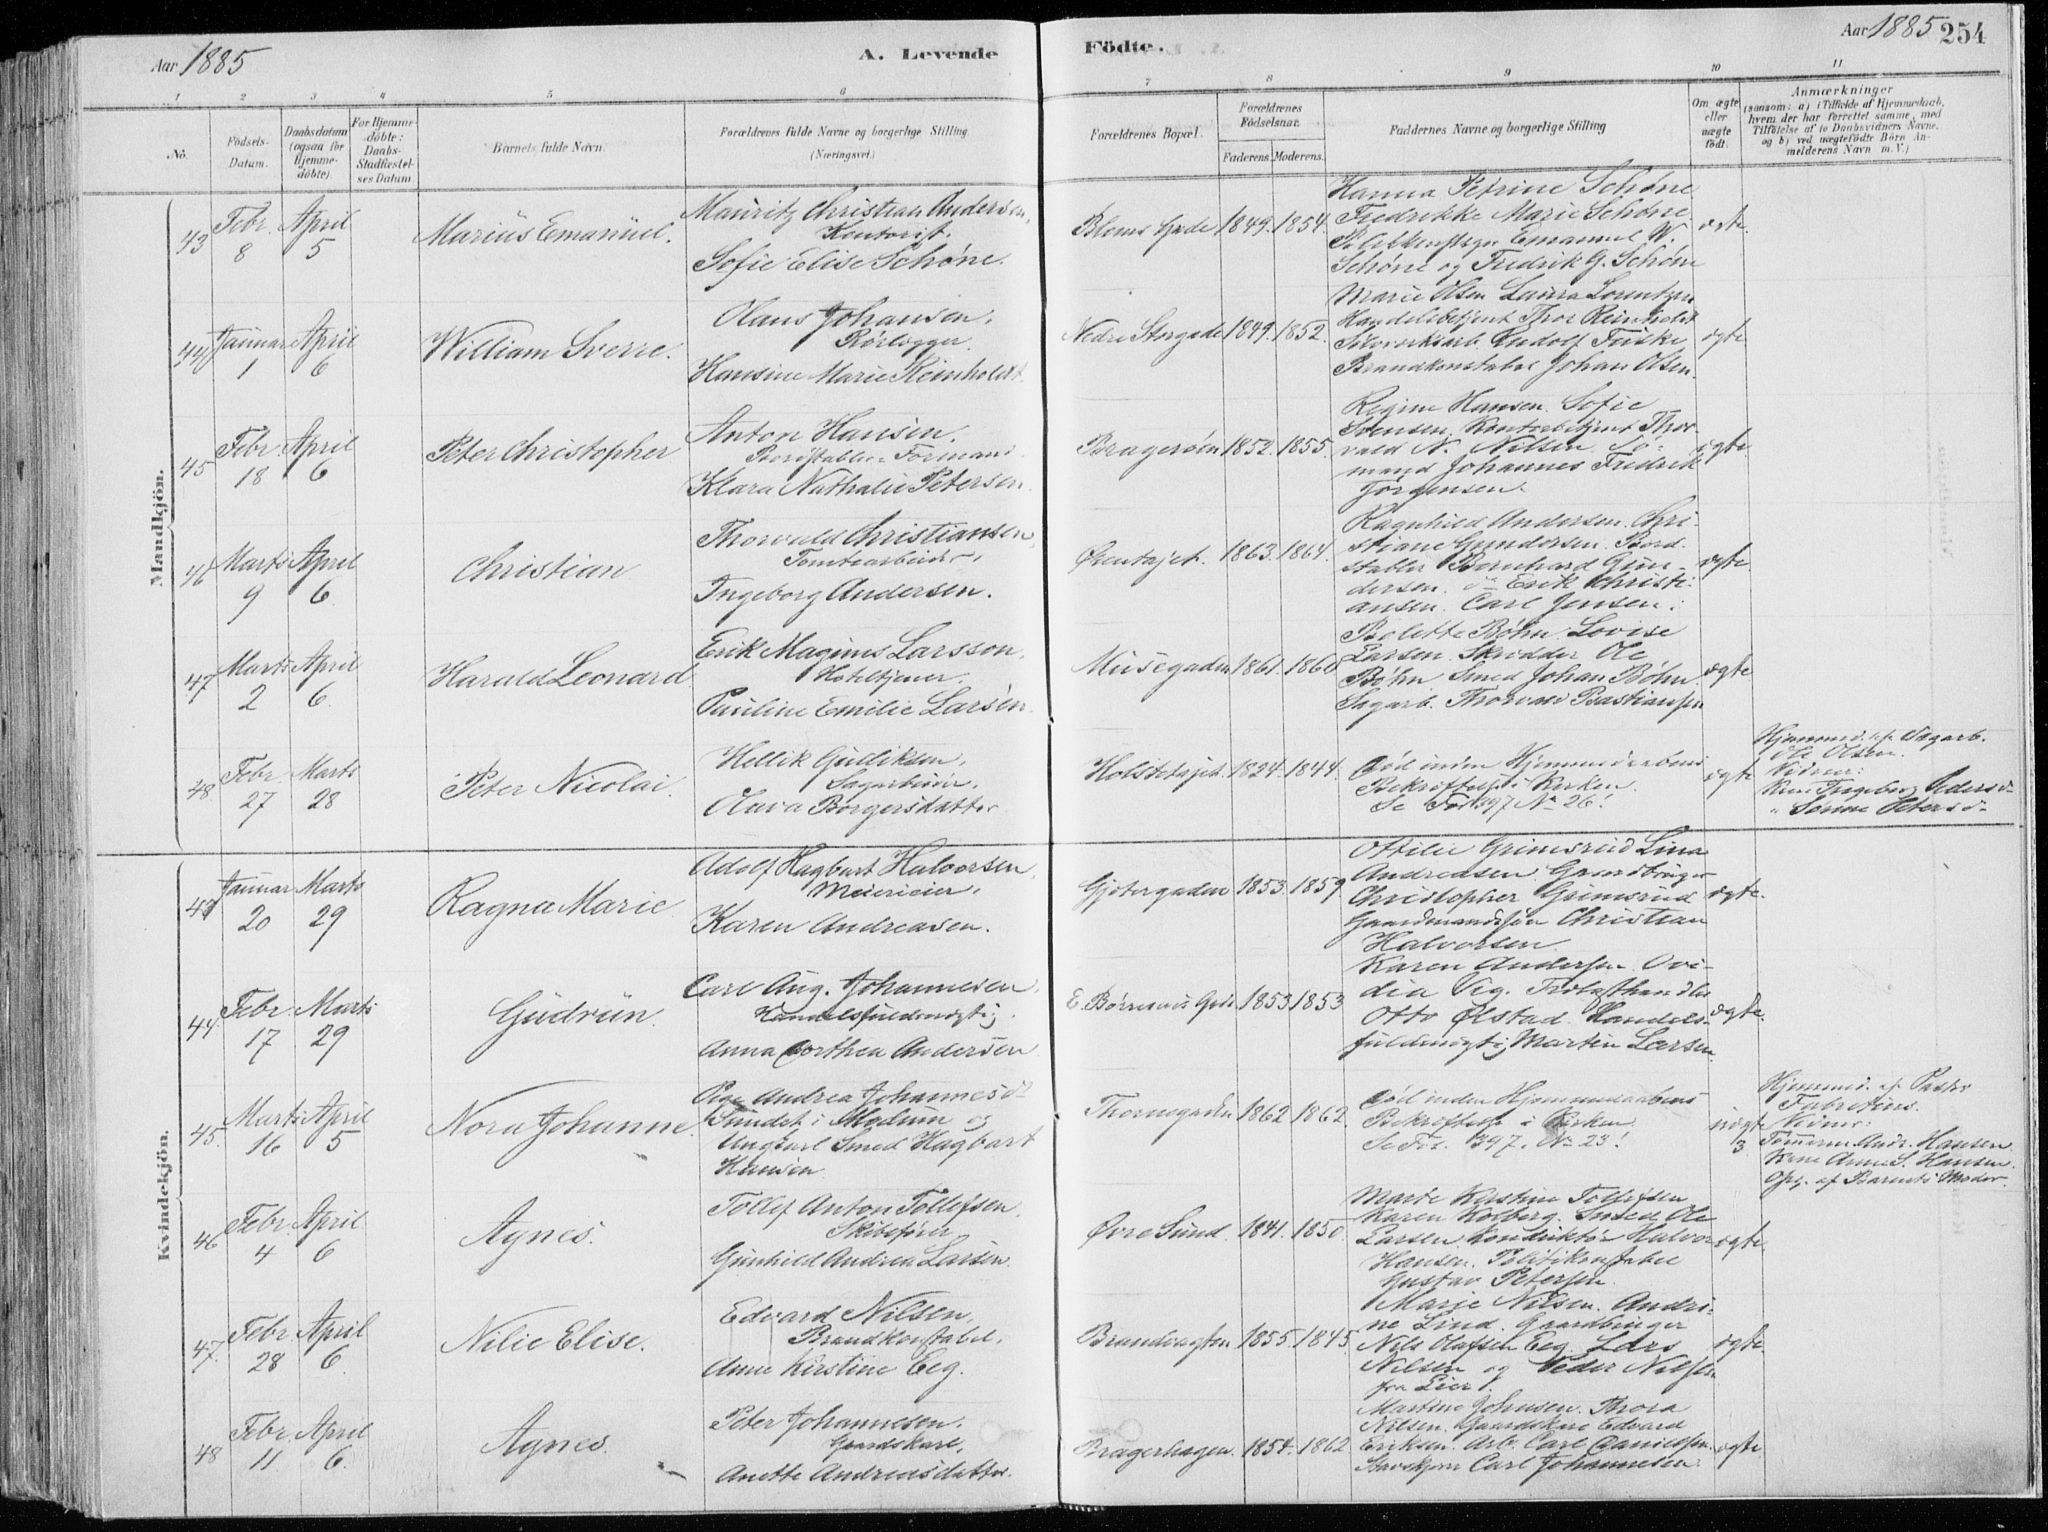 Aar 1885
A. Levende
Födte.
Aar 1885 254
1 2 3 4 5 6 7 8 9 10 11
No.
Födsels-
Datum.
Daabsdatum
(ogsaa for
Hjemme-
döbte).
For Hjemme-
döbte:
Daabs-
Stadfæstel-
ses Datum
Barnets fulde Navn.
Forældrenes fulde Navne og borgerlige Stilling
(Næringsvei.)
Forældrenes Bopæl.
Forældrenes
Födselsaar.
Faderens. Moderens.
Faddernes Navne og borgerlige Stilling
Om ægte
eller
uægte
födt.
Anmærkninger
(saasom: a) i Tilfælde af Hjemmedaab,
hvem der har forrettet samme, med
Tilföielse af to Daabsvidners Navne,
og b) ved uægtefödte Börn An-
melderens Navn m. V.)
Mandkjön.
43 Febr. 8 April 5
Marius Emanuel.
Mauritz Christian Andersen,
Kontorist.
Sofie Elise Schøne.
Bloms Gade 1849. 1854.
Hanna Petrine Schøne
Fredrikke Marie Schøne
Emanuel W.
Schøne og Fredrik G. Schøne
ægte.
44 Januar 1 April 6
William Sverre.
Olaus Johansen,
Rørlægger
Hansine Marie Reinholdt.
Nedre Storgade 1849. 1852.
Marie Olsen Laura Lorentzen
Handelsbetjent Thor Reinholdt
Rudolf Friske
Brandkonstabel Johan Olsen.
ægte
45 Febr. 18 April 6
Peter Christopher
Anton Hansen.
Bordstabler-Formand
Klara Nathalie Petersen.
Bragerøen 1852. 1855.
Regine Hansen. Sofie
Svensen, Kontorbetjent Thor-
vald N. Nilsen. Sø-
mand Johannes Fredrik
Jørgensen.
ægte
46 Marts 9 April 6.
Christian
Thorvald Christiansen,
Tomtearbeider,
Ingeborg Andersen.
Ørentøjet. 1863. 1864.
Ragnhild Andersen. Chri-
stiane Gundersen. Bord-
stabler Bernhard Gun-
dersen. do Erik Christi-
ansen. Carl Jensen.
ægte
47 Marts 2 April 6.
Harald Leonard
Erik Magnus Larsson,
Hoteltjener.
Pauline Emilie Larsen.
Musegaden 1861. 1860
Bolette Bøhn. Lovise
Larsen. Skrædder Ole
Bøhn Smed Johan Bøhn.
Sagarb. Thorvald Bastiansen
ægte
48. Febr. 27 Marts 28
Peter Nicolai.
Hellik Gulliksen,
Sagarbeider.
Olava Børgersdatter
Holstetøjet. 1824. 1844.
Død inden Hjemmedaabens
Bekræftelse i Kirken.
Se Fol 397 No 26!
ægte
Hjemmed. af Sagarb.
Ole Olsen.
Vidner:
Kone Ingeborg Pedersd.
" Petersd.
Kvindekjön.
43 Januar 20 Marts 29
Ragna Marie
Adolf Hagbart Halvorsen,
Meierieier,
Karen Andreasen.
Gjetergaden 1853. 1859
Ottilie Grimsrud Lina
Andreasen. Gaardbruger
Christopher Grimsrud
Gaardmandssøn Christian
Halvorsen
ægte.
44. Febr. 17 Marts 29
Gudrun.
Carl Aug. Johannesen,
Handelsfuldmægtig.
Anna Dorthea Andersen
E. Børresens Gade 1853 1853
Karen Andersen Ovi-
dia Vig. Trælasthandler
Otto Ølstad. Handels-
fuldmægtig Martin Larsen.
ægte.
45. Marts 16 April 5
Nora Johanne.
Pige Andrea Johannesd.
Sundet i Modum og
Ungkarl Smed Hagbart
Hansen
Thornegaden 1862 1862.
Død inden Hjemmedaabens
Bekræftelse i Kirken
Se Fol. 397. No 23!
uægte
3
Hjemmed. af Pastor
Fabritius.
Vidner:
Tømmerm. Andr. Hansen
Kone Anne S. Hansen.
Opg. af Barnets Moder.
46 Febr. 4 April 6
Agnes.
Tollef Anton Tollefsen,
Skibsfører
Gunhild Andrea Larsen.
Øvre Sund. 1841. 1850.
Marte Kirstine Tollefsen
Karen Kolberg. Smed Ole
Larsen. Konduktør Halvor
Hansen. Politikonstabel
Gustav Petersen.
ægte.
47. Febr. 28 April 6.
Nilie Elise.
Edvard Nilsen,
Brandkonstabel,
Anne Kirstine Eeg.
Brandvagten 1855. 1845.
Marie Nilsen. Andri-
ne Lind. Gaardbruger
Nils Olafsen Eeg. Lars
Nilsen og Peder Nilsen
fra Lier.
ægte.
48 Febr. 11 April 6.
Agnes.
Peter Johannesen,
Gaardskarl,
Anette Andreasdatter.
Bragerhagen. 1854. 1862
Martine Johnsen. Thora
Nilsen. Gaardskarl Edvard
Eriksen. Arb. Carl Danielsen.
Carl Johannesen.
ægte.